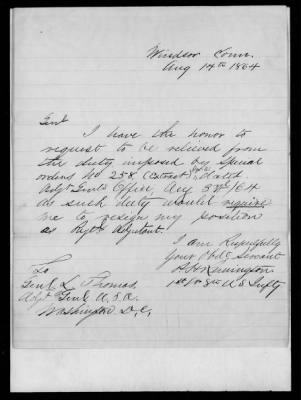 Windsor Conn.
Aug 14th 1864
Genl
I have the honor to
request to be relieved from
the duty imposed by Special
orders No 258 (Extract) dated
Adjt Genls Office, Aug 3rd /64
As such duty would require
me to resign my position
as Regtl Adjutant.
I am Respectfully
Your Obdt Servant
Remington
1st Lt 8th U.S. Infty
To
Genl L. Thomas,
Adjt Genl U.S.A.
Washington D.C.